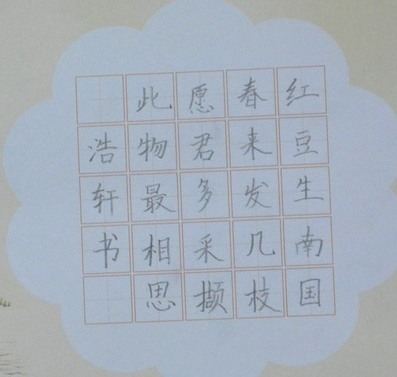 红豆生南国
春来发几枝
愿君多采撷
此物最相思
浩轩书